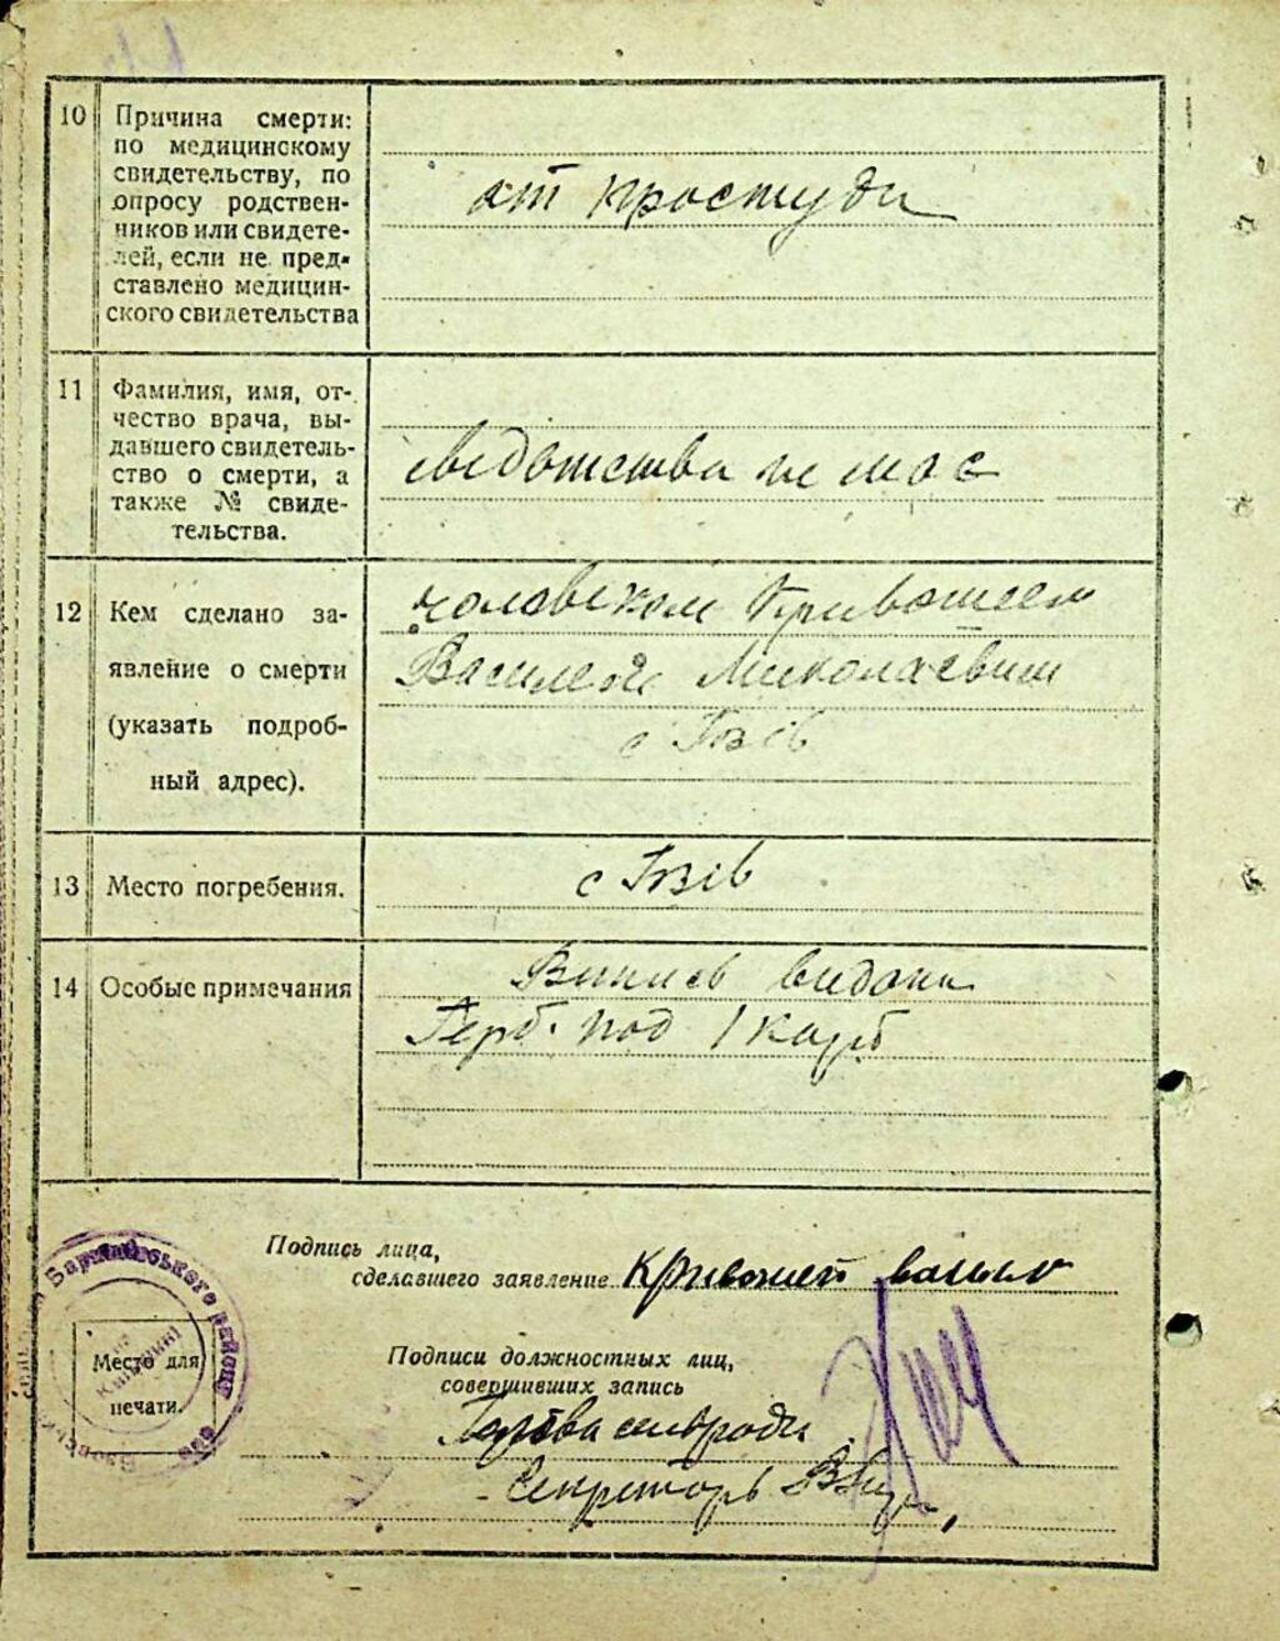 10
Причина смерти:
по медицинскому
свидетельству, по
опросу родствен-
ников или свидете-
лей, если не пред-
ставлено медицин-
ского свидетельства
от простуди
11
Фамилия, имя, от-
чество врача, вы-
давшего свидетель-
ство о смерти, а
также № свиде-
тельства.
свідотства не має
12
Кем сделано за-
явление о смерти
(указать подроб-
ный адрес).
чоловіком Кривошеєм
Василем Миколаевич
с Гвзів
13
Место погребения.
с Гвзів
14
Особые примечания
Випись видана
Герб. под 1 карб
Подпись лица,
сделавшего заявление Кривошей
Подписи должностных лиц,
совершивших запись
Голова сільради
Секреторь
Место для
печати.
Баришівського району